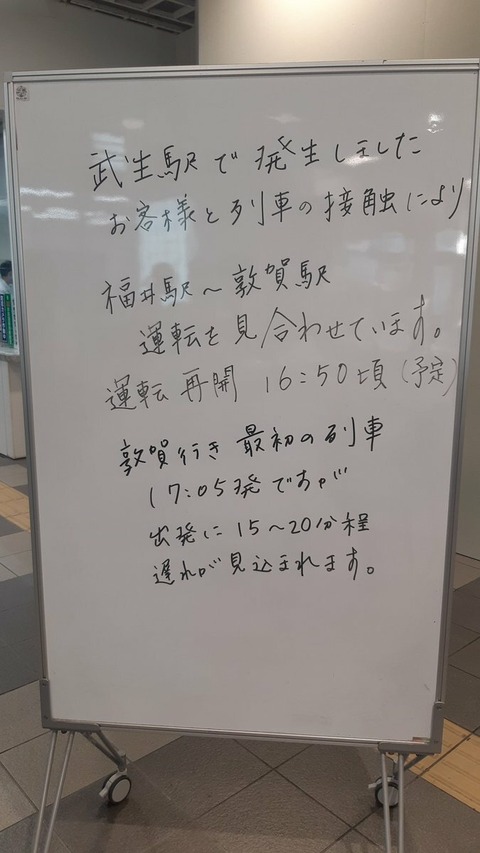 武生駅で発生しました
お客様と列車の接触により
福井駅～敦賀駅
運転を見合わせています。
運転再開 16:50頃(予定)
敦賀行き最初の列車
17:05発ですが
出発に15～20分程
遅れが見込まれます。